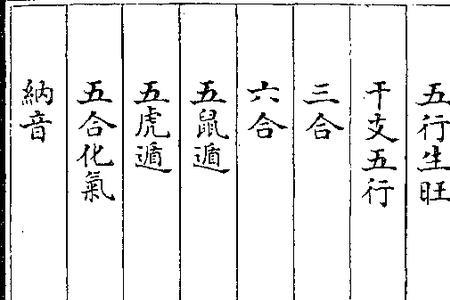 五行生旺
干支五行
三合
六合
五鼠遁
五虎遁
五合化氣
納音